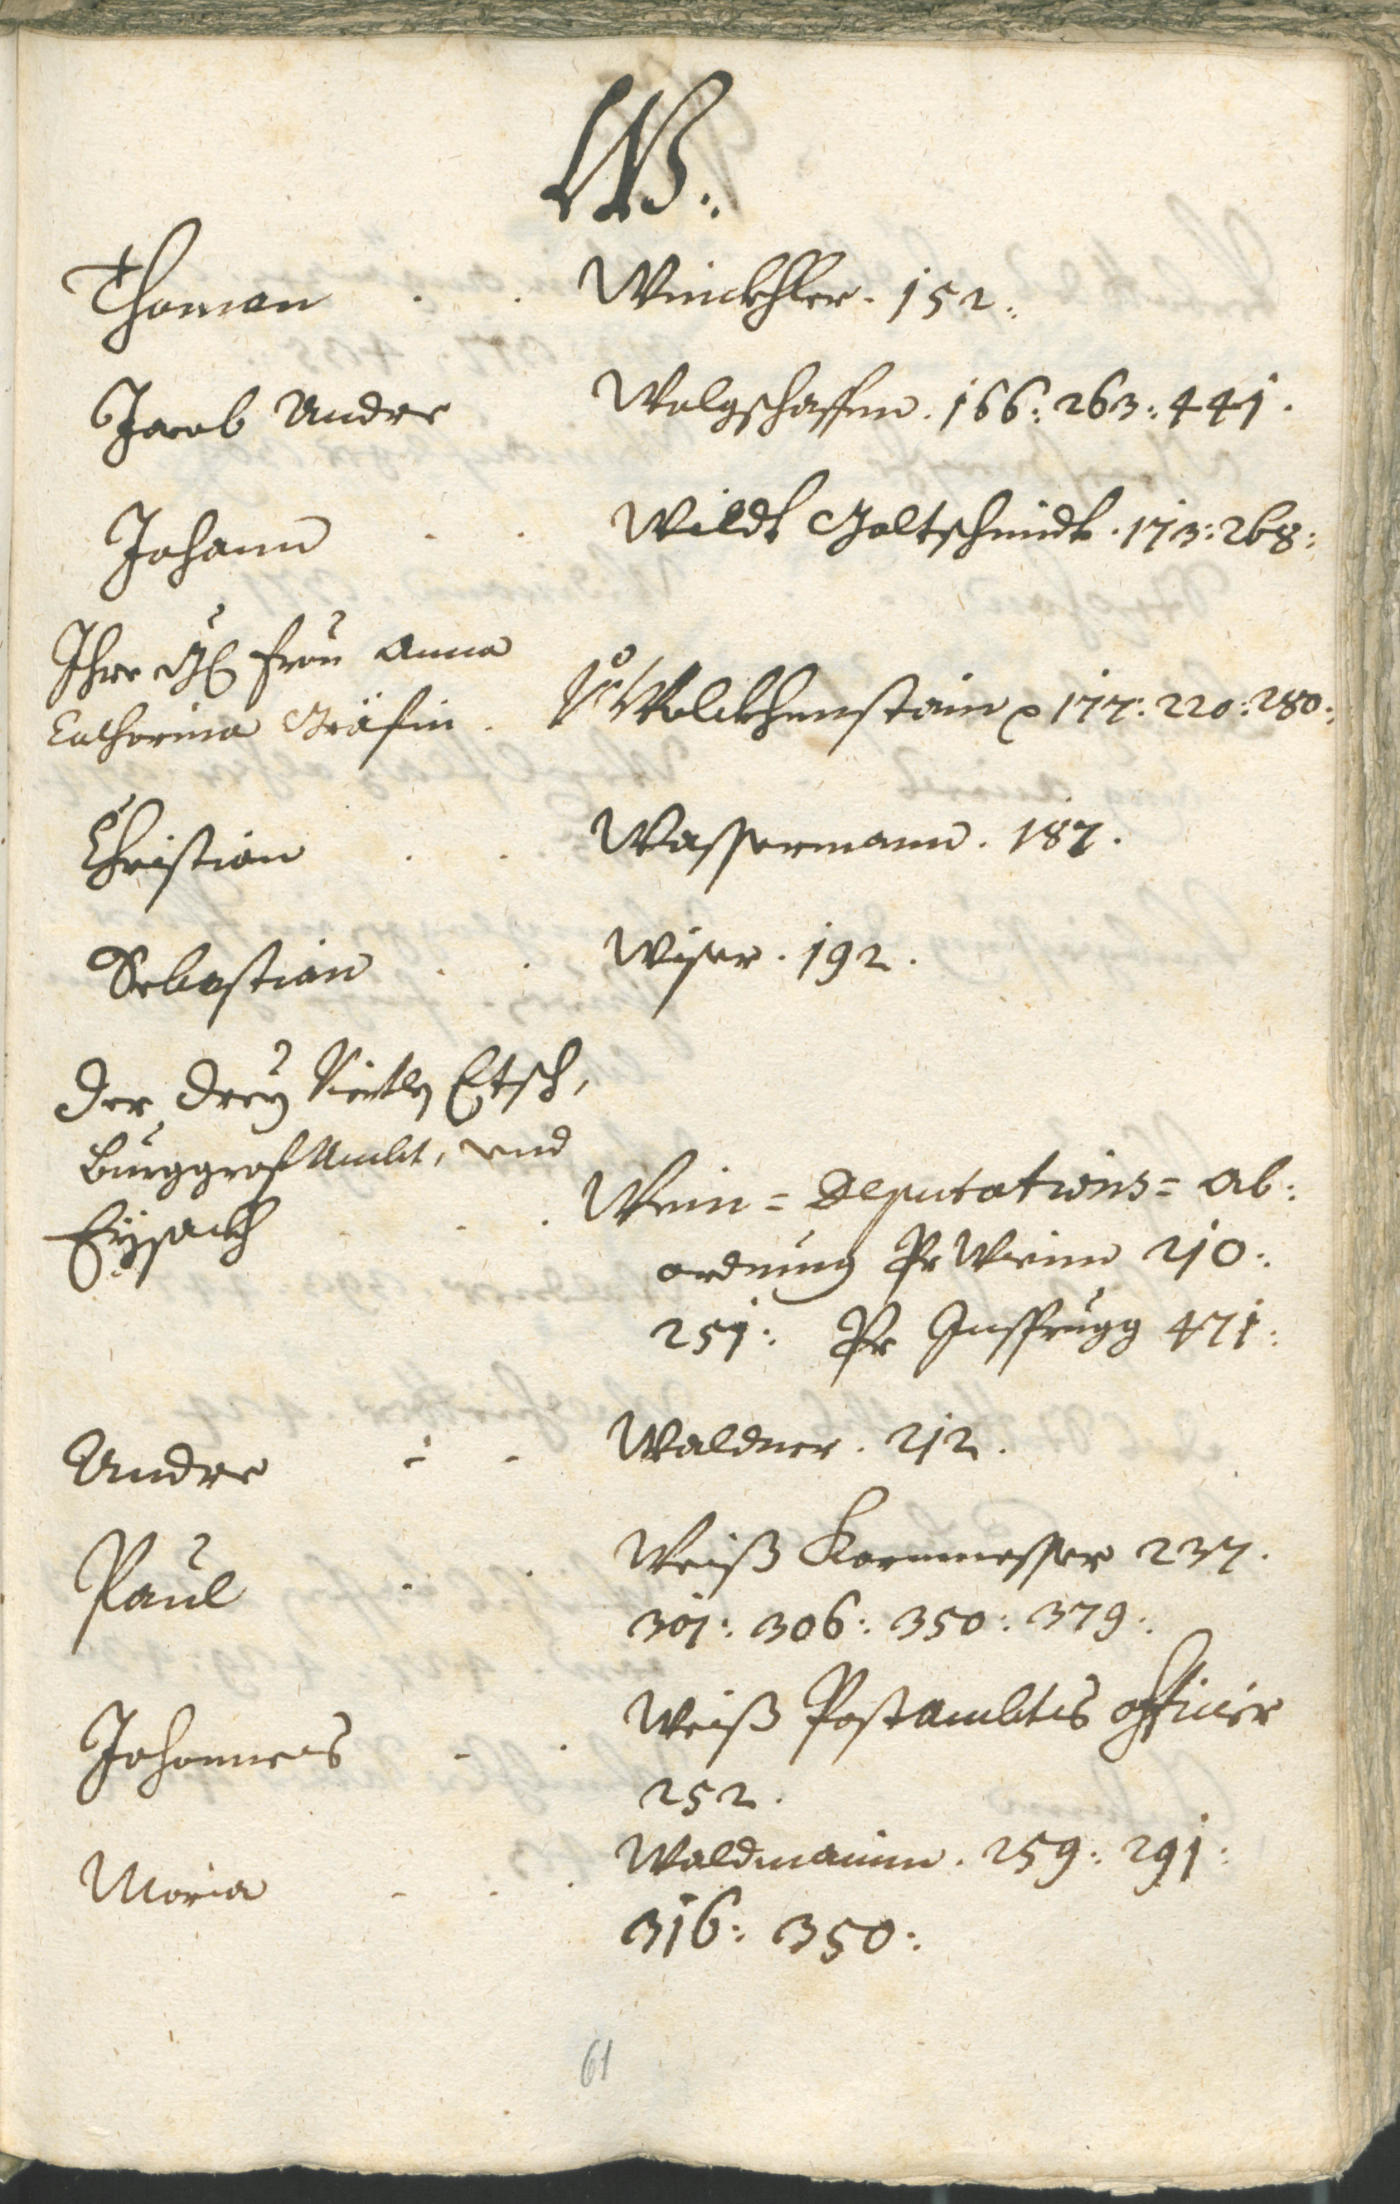 W.
Thoman . . Winckhler. 152.
Jacob Andre Wolgschaffen. 166: 263: 441.
Johann . . Wildt Goltschmidt. 173: 268:
Ihro Frau Anna
Catharina Gräfin . Vo Wolckhenstain 177: 220: 280:
Christian . . Wassermann. 187.
Sebastian . . Wiser. 192.
Der Drey Viertln Etsch,
Burggraf Ambt, und
Eysackh . . . Wein-Deputations-Ab:
ordnung Pr Wienn 210:
251: Pr Insprugg 471:
Andre . . Waldner. 212.
Paul . . Weiß Kornmesser 237.
301: 306: 350: 379:
Johannes . . Weiß Postambtes officier
252.
Maria . . . Waldmanin. 259: 291:
316: 350:
61